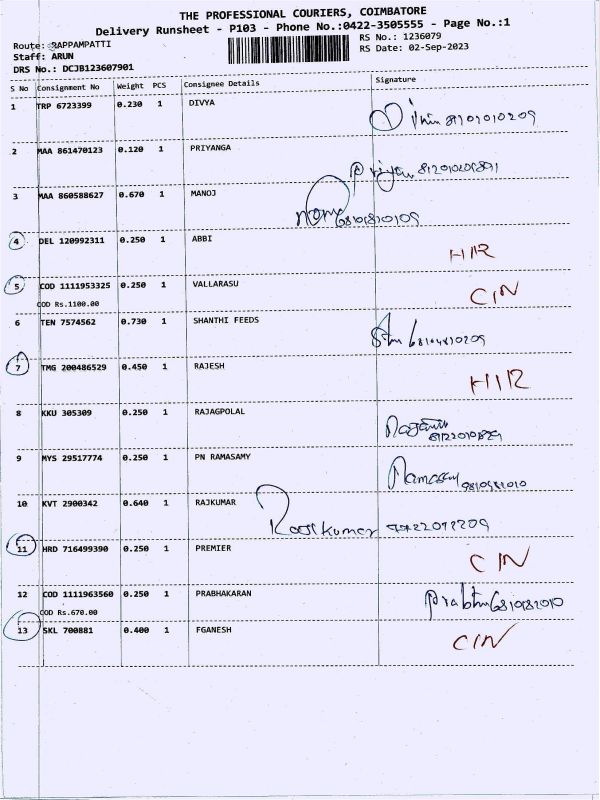 THE PROFESSIONAL COURIERS, COIMBATORE
Delivery Runsheet - P103 - Phone No.:0422-3505555 - Page No.:1
Route: RAPPAMPATTI
RS No.: 1236079
Staff: ARUN
RS Date: 02-Sep-2023
DRS No.: DCJB123607901
S No Consignment No Weight PCS Consignee Details Signature
1 TRP 6723399 0.230 1 DIVYA
2 MAA 861470123 0.120 1 PRIYANGA
3 MAA 860588627 0.670 1 MANOJ
4 DEL 120992311 0.250 1 ABBI
5 COD 1111953325 0.250 1 VALLARASU CIN
COD Rs.1100.00
6 TEN 7574562 0.730 1 SHANTHI FEEDS
7 TMG 200486529 0.450 1 RAJESH
8 KKU 305309 0.250 1 RAJAGPOLAL
9 MYS 29517774 0.250 1 PN RAMASAMY Ramasamy
10 KVT 2900342 0.640 1 RAJKUMAR Rajkumar
11 HRD 716499390 0.250 1 PREMIER CIN
12 COD 1111963560 0.250 1 PRABHAKARAN
COD Rs.670.00
13 SKL 700881 0.400 1 FGANESH CIN